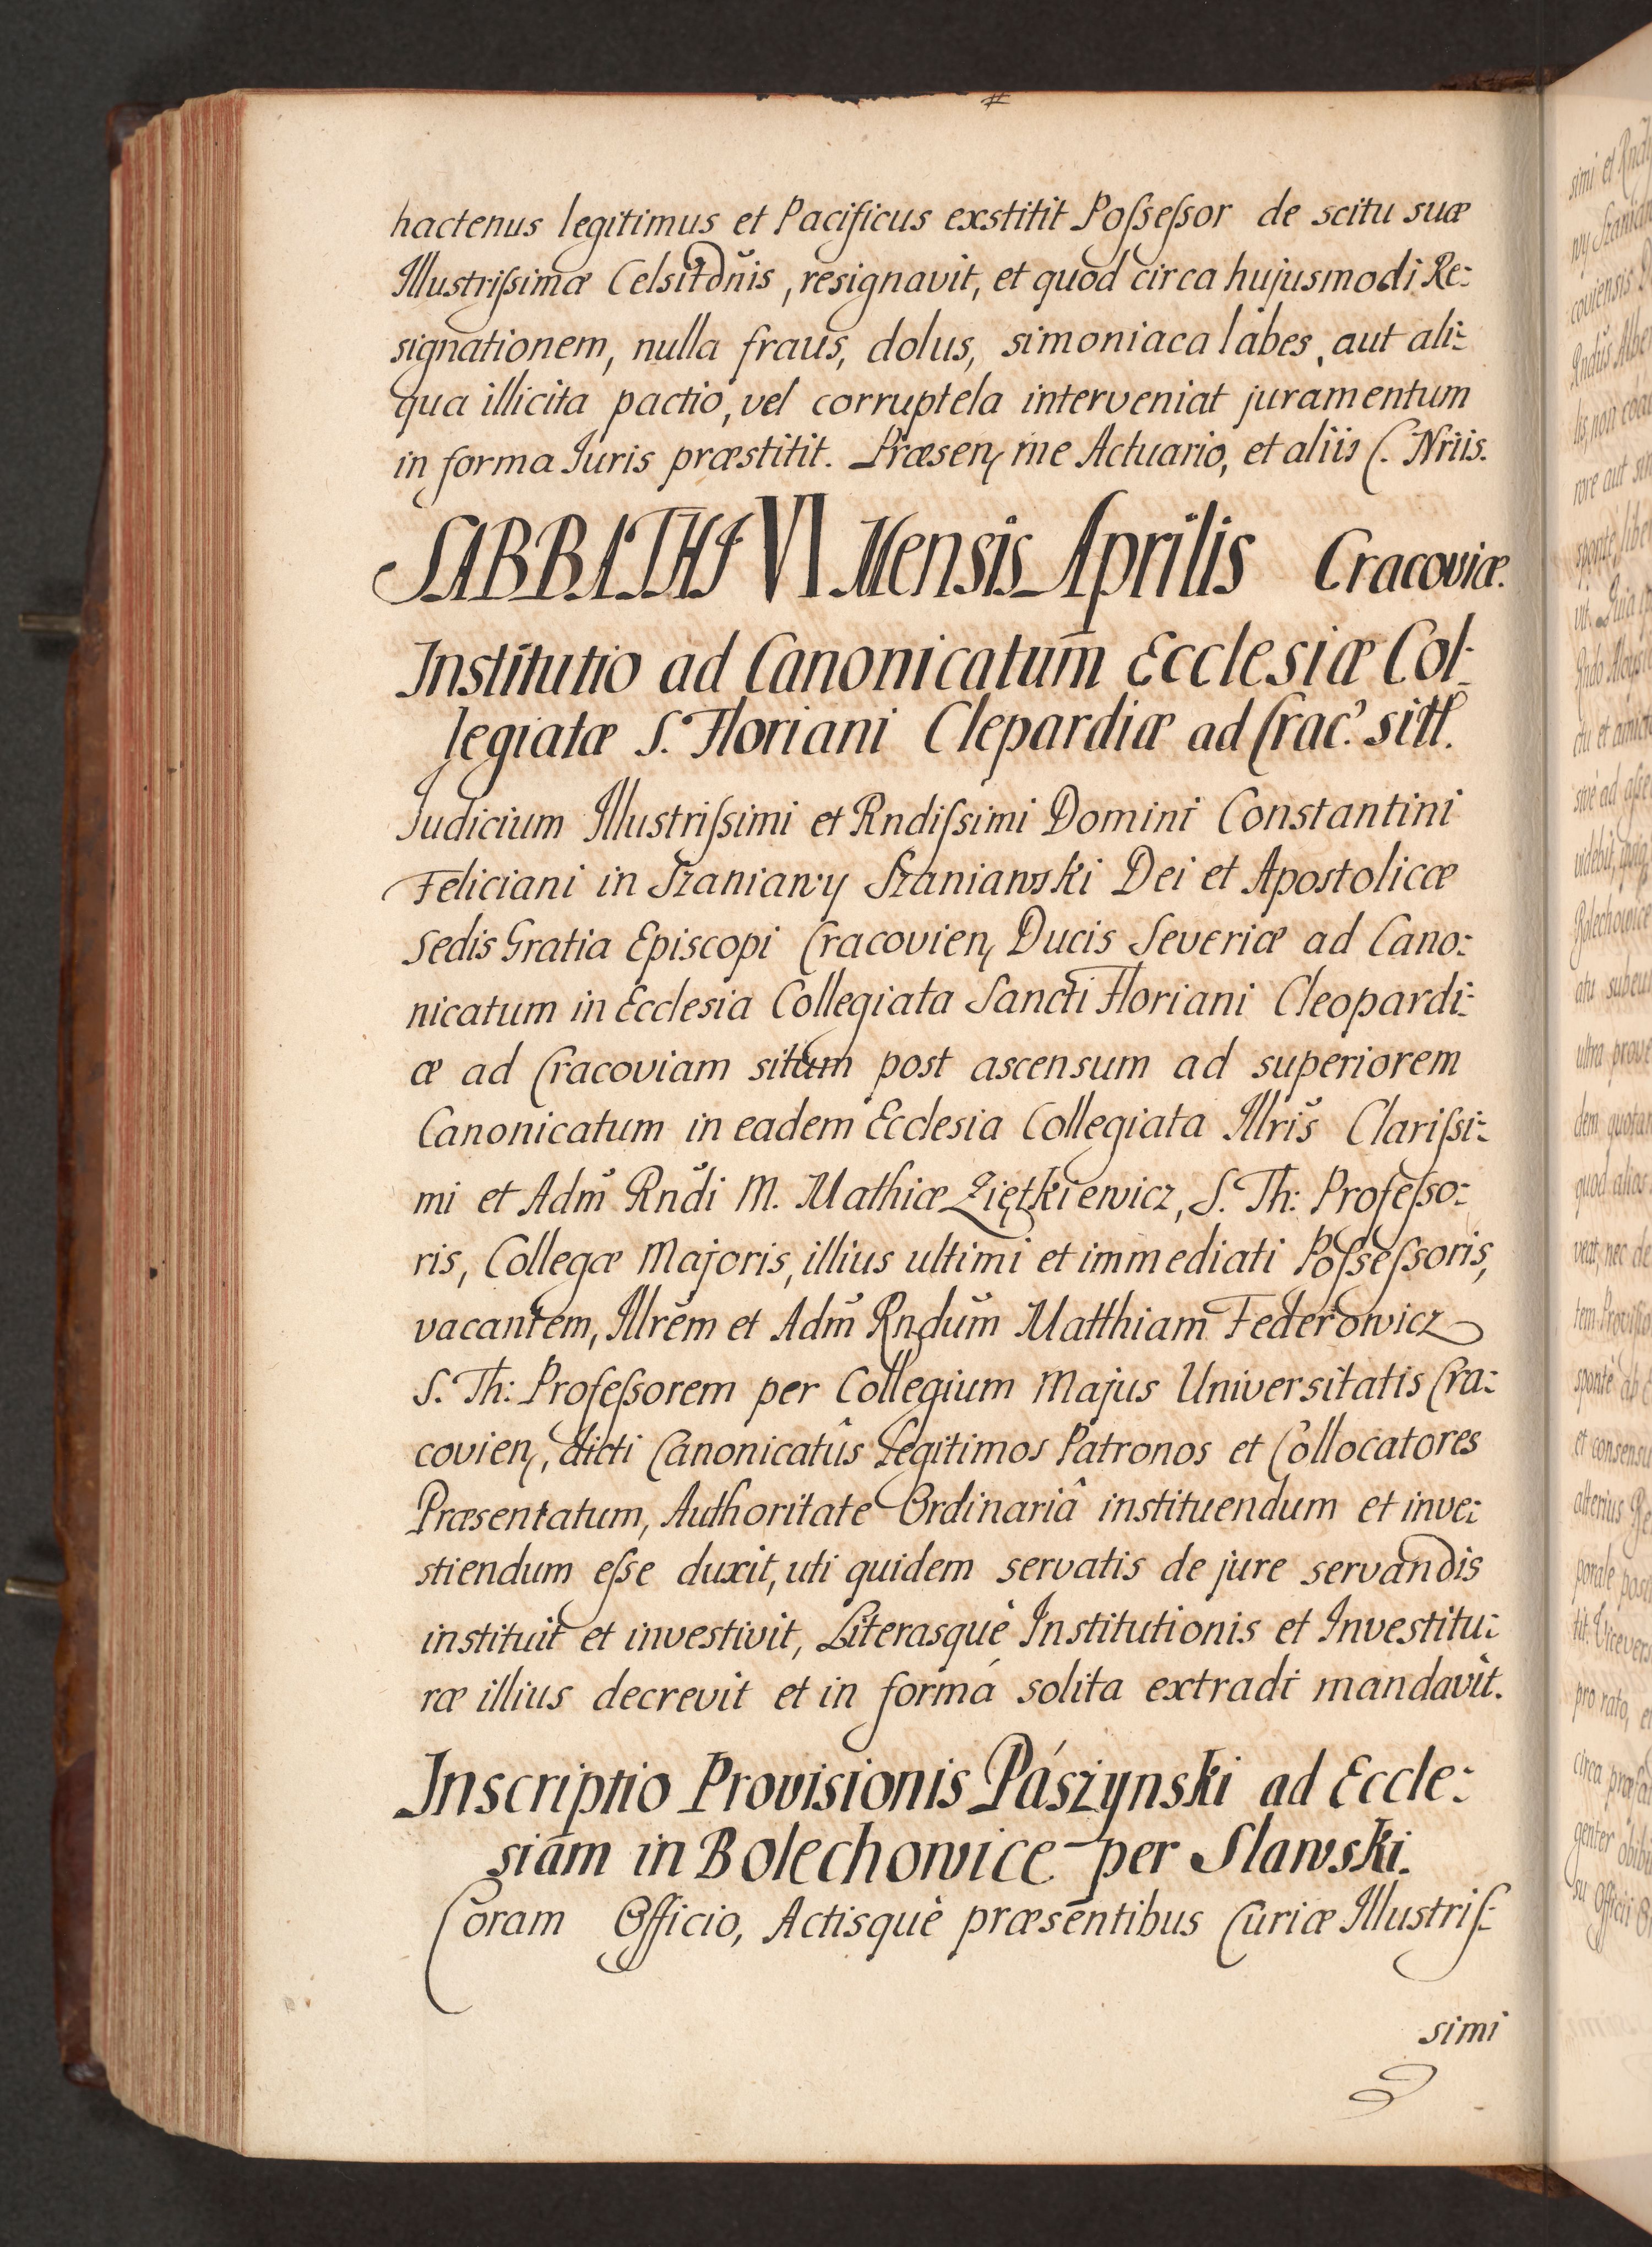 hactenus legitimus et Pacificus exstitit Poſseſsor de scitu suæ
Illustriſsimæ Celsitdñis, resignavit, et quod circa hujusmodi Re:
signationem, nulla fraus, dolus, simoniaca labes, aut ali:
qua illicita pactio, vel corruptela interveniat juramentum
in forma Iuris præstitit. Præsen, me Actuario, et aliis C. Nriis.
SABBATHI VI Mensis Aprilis Cracoviæ.
Institutio ad Canonicatum Ecclesiæ Col:
legiatæ S. Floriani Clepardiæ ad Crac. sitt.
Judicium Illustriſsimi et Rndiſsimi Domini Constantini
Feliciani in Szaniawy Szaniawski Dei et Apostolicæ
Sedis Gratia Episcopi Cracovien, Ducis Severiæ ad Cano:
nicatum in Ecclesia Collegiata Sancti Floriani Cleopardi:
æ ad Cracoviam sitam post ascensum ad superiorem
Canonicatum in eadem Ecclesia Collegiata Illris̃ Clariſsi:
mi et Adm̃ Rndi M. Mathiæ Ziętkiewicz, S. Th: Profeſso:
ris, Collegæ Majoris, illius ultimi et immediati Poſseſsoris,
vacantem, Illrẽm et Adm̃ Rndũm Matthiam Federowicz
S. Th: Profeſsorem per Collegium Majus Universitatis Cra:
covien, dicti Canonicatûs Legitimos Patronos et Collocatores
Præsentatum, Authoritate Ordinariâ instituendum et inve:
stiendum eſse duxit, uti quidem servatis de jure servandis
instituit et investivit, Literasquè Institutionis et Investitu:
ræ illius decrevit et in formá solita extradi mandavit.
Inscriptio Provisionis Pászynski ad Eccle:
siam in Bolechowice per Slawski.
Coram Officio, Actisquè præsentibus Curiæ Illustriſ:
simi